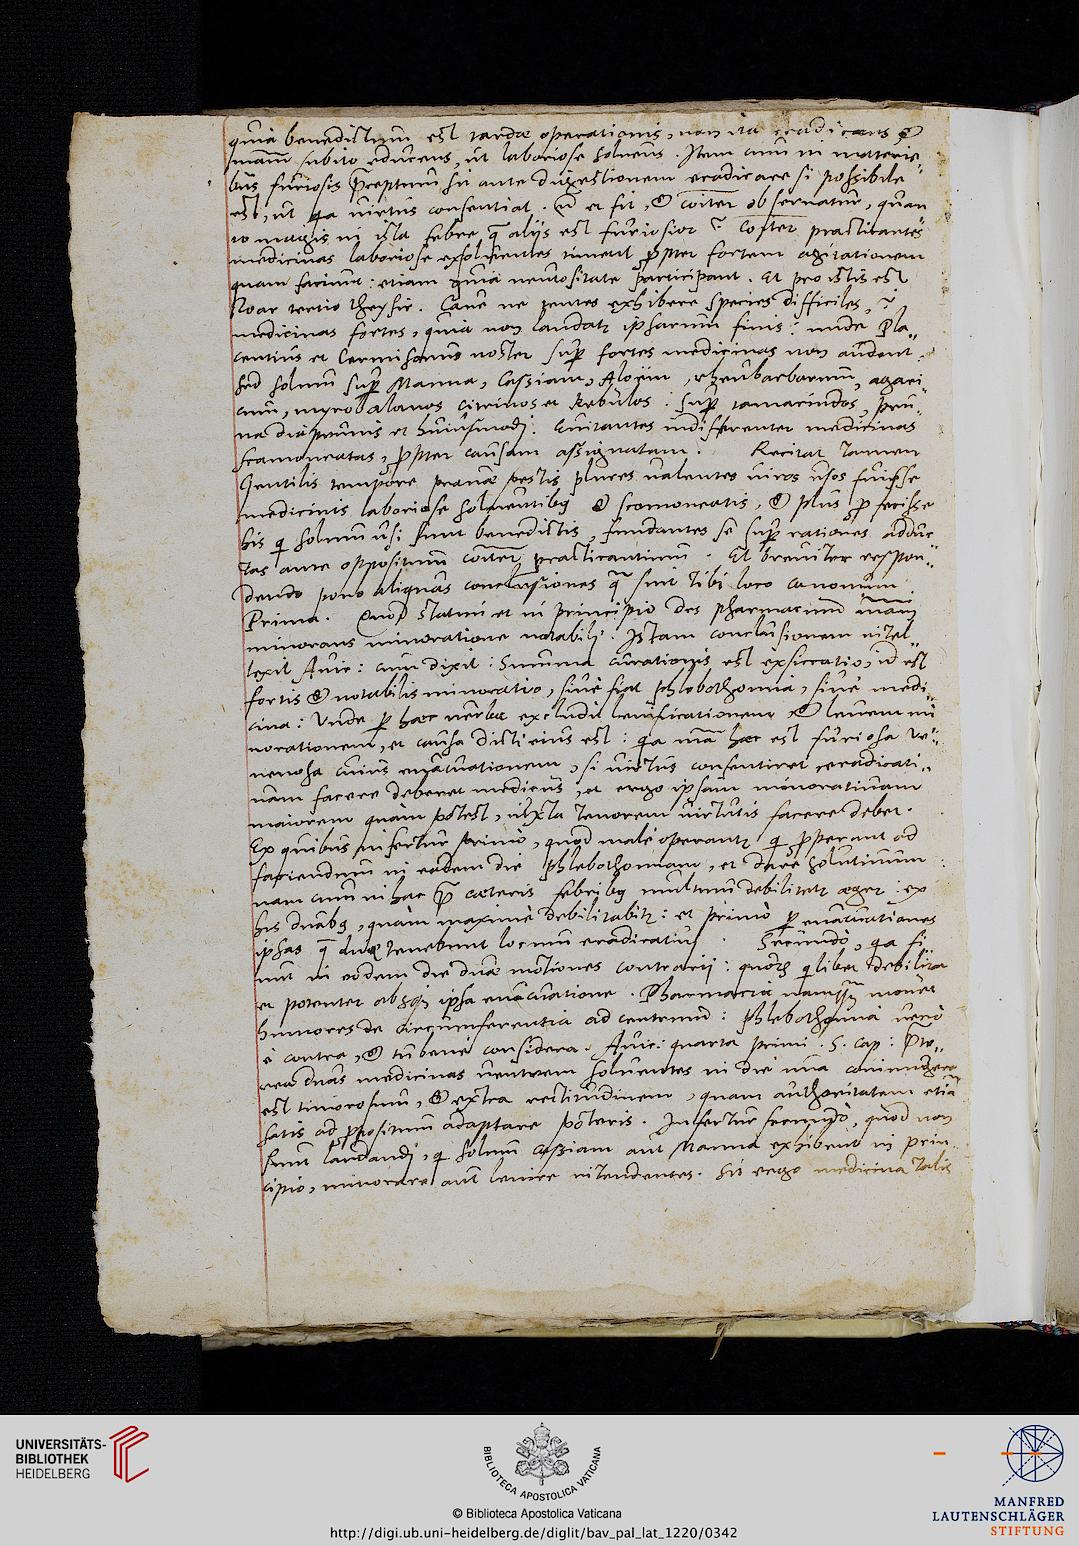 quia benedictum est tardae operationis, non ita eradicans &
mam̄ subito educens, ut laboriose soluens. Item cum in materie„
bus furiosis p̄ceptum sit ante digestionem eradicare si possibile
est, ut qa virtus consentiat. et fit, & coīter obseruatur, quan
to magis in ista febre q̄ alijs est furiosior? Coīter practicantes
medicinas laboriose exsoluentes timent propter fortem agitationem
quam faciunt: etiam quia neutrositate participant. Et pro istis est
Noar tertio theysir. Caue ne tentes exhibere species difficiles,
medicinas fortes, quia non laudatz ipsarum finis: unde Pla„
centius et Cermisonus noster sup fortes medicinas non audent,
sed solum sup Manna, Cassiam, Aloen, rheubarbarum, agari„
cum, myrobalanos citrinos et kebulos: sup tamarindos, pru„
na diaprunis et huiusmodj. Euitantes indifferenter medicinas
scamoneatas, propter causam assignatam. Recitat tamen
Gentilis tempore prauae pestis plures ualentes uiros usos fuisse
medicinis laboriose soluentibq & scamoneatis, & plus profecisse
his q solum usi sunt benedictis, fundantes se sup rationes adduc
tas ante oppositum practicantium. Et breuiter respon„
dendo pono aliquas conclusiones q̄ sint tibi loco canonum
Prima. Quod statim et in principio des pharmacum mam̄
minorans minoratione notabilj. Istam conclusionem intel„
lexit Auic: cum dixit: Summa curationis est exsiccatio, id est
fortis & notabilis minoratio, siue fiat phlebothomia, siue medi„
cina: Unde p haec uerba excludit lenificationem & leuem mi
norationem, et causa dicti eius est: qa mā haec est furiosa ve„
nenosa cuius euacuationem, si uirtus consentiret eradicati„
uam facere deberet medicus, et ergo ipsam minoratiuam
maiorem quam potest, iuxta tenorem uirtutis facere debet.
Ex quibus infertur primò, quod malè operantz q properant ad
faciendum in eadem die phlebothomiam, et dare solutiuum
nam cum in hac p̄ caeteris febribq multum debilitetz aeger: ex
his duabq, quàm maximè debilitabitz: et primò p euacuationes
ipsas q̄ duae tenebunt locum eradicatiui. Secundò, qa fi„
unt in eodem die duae motiones contrarij: quorz qlibet debilitat
et potenter absq ipsa euacuatione. Pharmacia namq mouet
humores de circumferentia ad centrum: phlebothomia uerò
è contra, & tu benè considera. Auic: quarta primi. 5. cap: P̄te„
rea duas medicinas uentrem soluentes in die una coniungere
est timorosum, & extra rectitudinem, quam authoritatem etiā
satis ad propositum adaptare poteris. Infertur secundò, quod non
sunt laudandj, q solum Cassiam aut Manna exhibent in prin„
cipio, minorare aut lenire intendentes. Sit ergo medicina talis
UNIVERSITÄTS-
BIBLIOTHEK
HEIDELBERG
BIBLIOTECA APOSTOLICA VATICANA
© Biblioteca Apostolica Vaticana
http://digi.ub.uni-heidelberg.de/diglit/bav_pal_lat_1220/0342
MANFRED
LAUTENSCHLÄGER
STIFTUNG